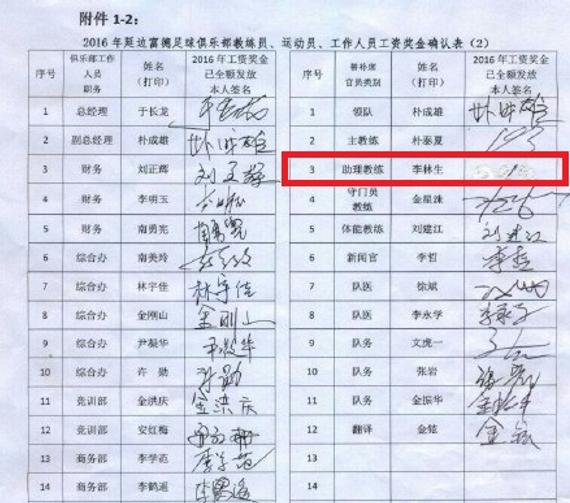 附件 1-2：
2016 年延边富德足球俱乐部教练员、运动员、工作人员工资奖金确认表（2）
序号 俱乐部工作人员职务 姓名（打印） 2016 年工资奖金已全额发放本人签名 序号 替补席官员类别 姓名（打印） 2016 年工资奖金已全额发放本人签名
1 总经理 于长龙 于长龙 1 领队 朴成雄 朴成雄
2 副总经理 朴成雄 朴成雄 2 主教练 朴泰夏
3 财务 刘正辉 刘正辉 3 助理教练 李林生
4 财务 李明玉 4 守门员教练 金星洙
5 财务 南勇宪 南勇宪 5 体能教练 刘建江 刘建江
6 综合办 南美玲 6 新闻官 李哲 李哲
7 综合办 林宇佳 林宇佳 7 队医 徐斌
8 综合办 金刚山 金刚山 8 队医 李永学
9 综合办 尹凝华 9 队务 文虎一
10 综合办 许勋 许勋 10 队务 张岩
11 竞训部 金洪庆 金洪庆 11 队务 金振华
12 竞训部 安红梅 12 翻译 金铉 金铉
13 商务部 李学范 李学范 13
14 商务部 李鹤遥 14